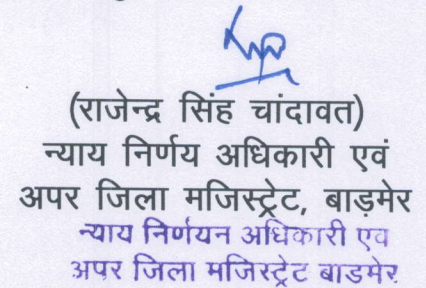 (राजेन्द्र सिंह चांदावत)
न्याय निर्णय अधिकारी एवं
अपर जिला मजिस्ट्रेट, बाड़मेर
न्याय निर्णयन अधिकारी एव
अपर जिला मजिस्ट्रेट बाडमेर